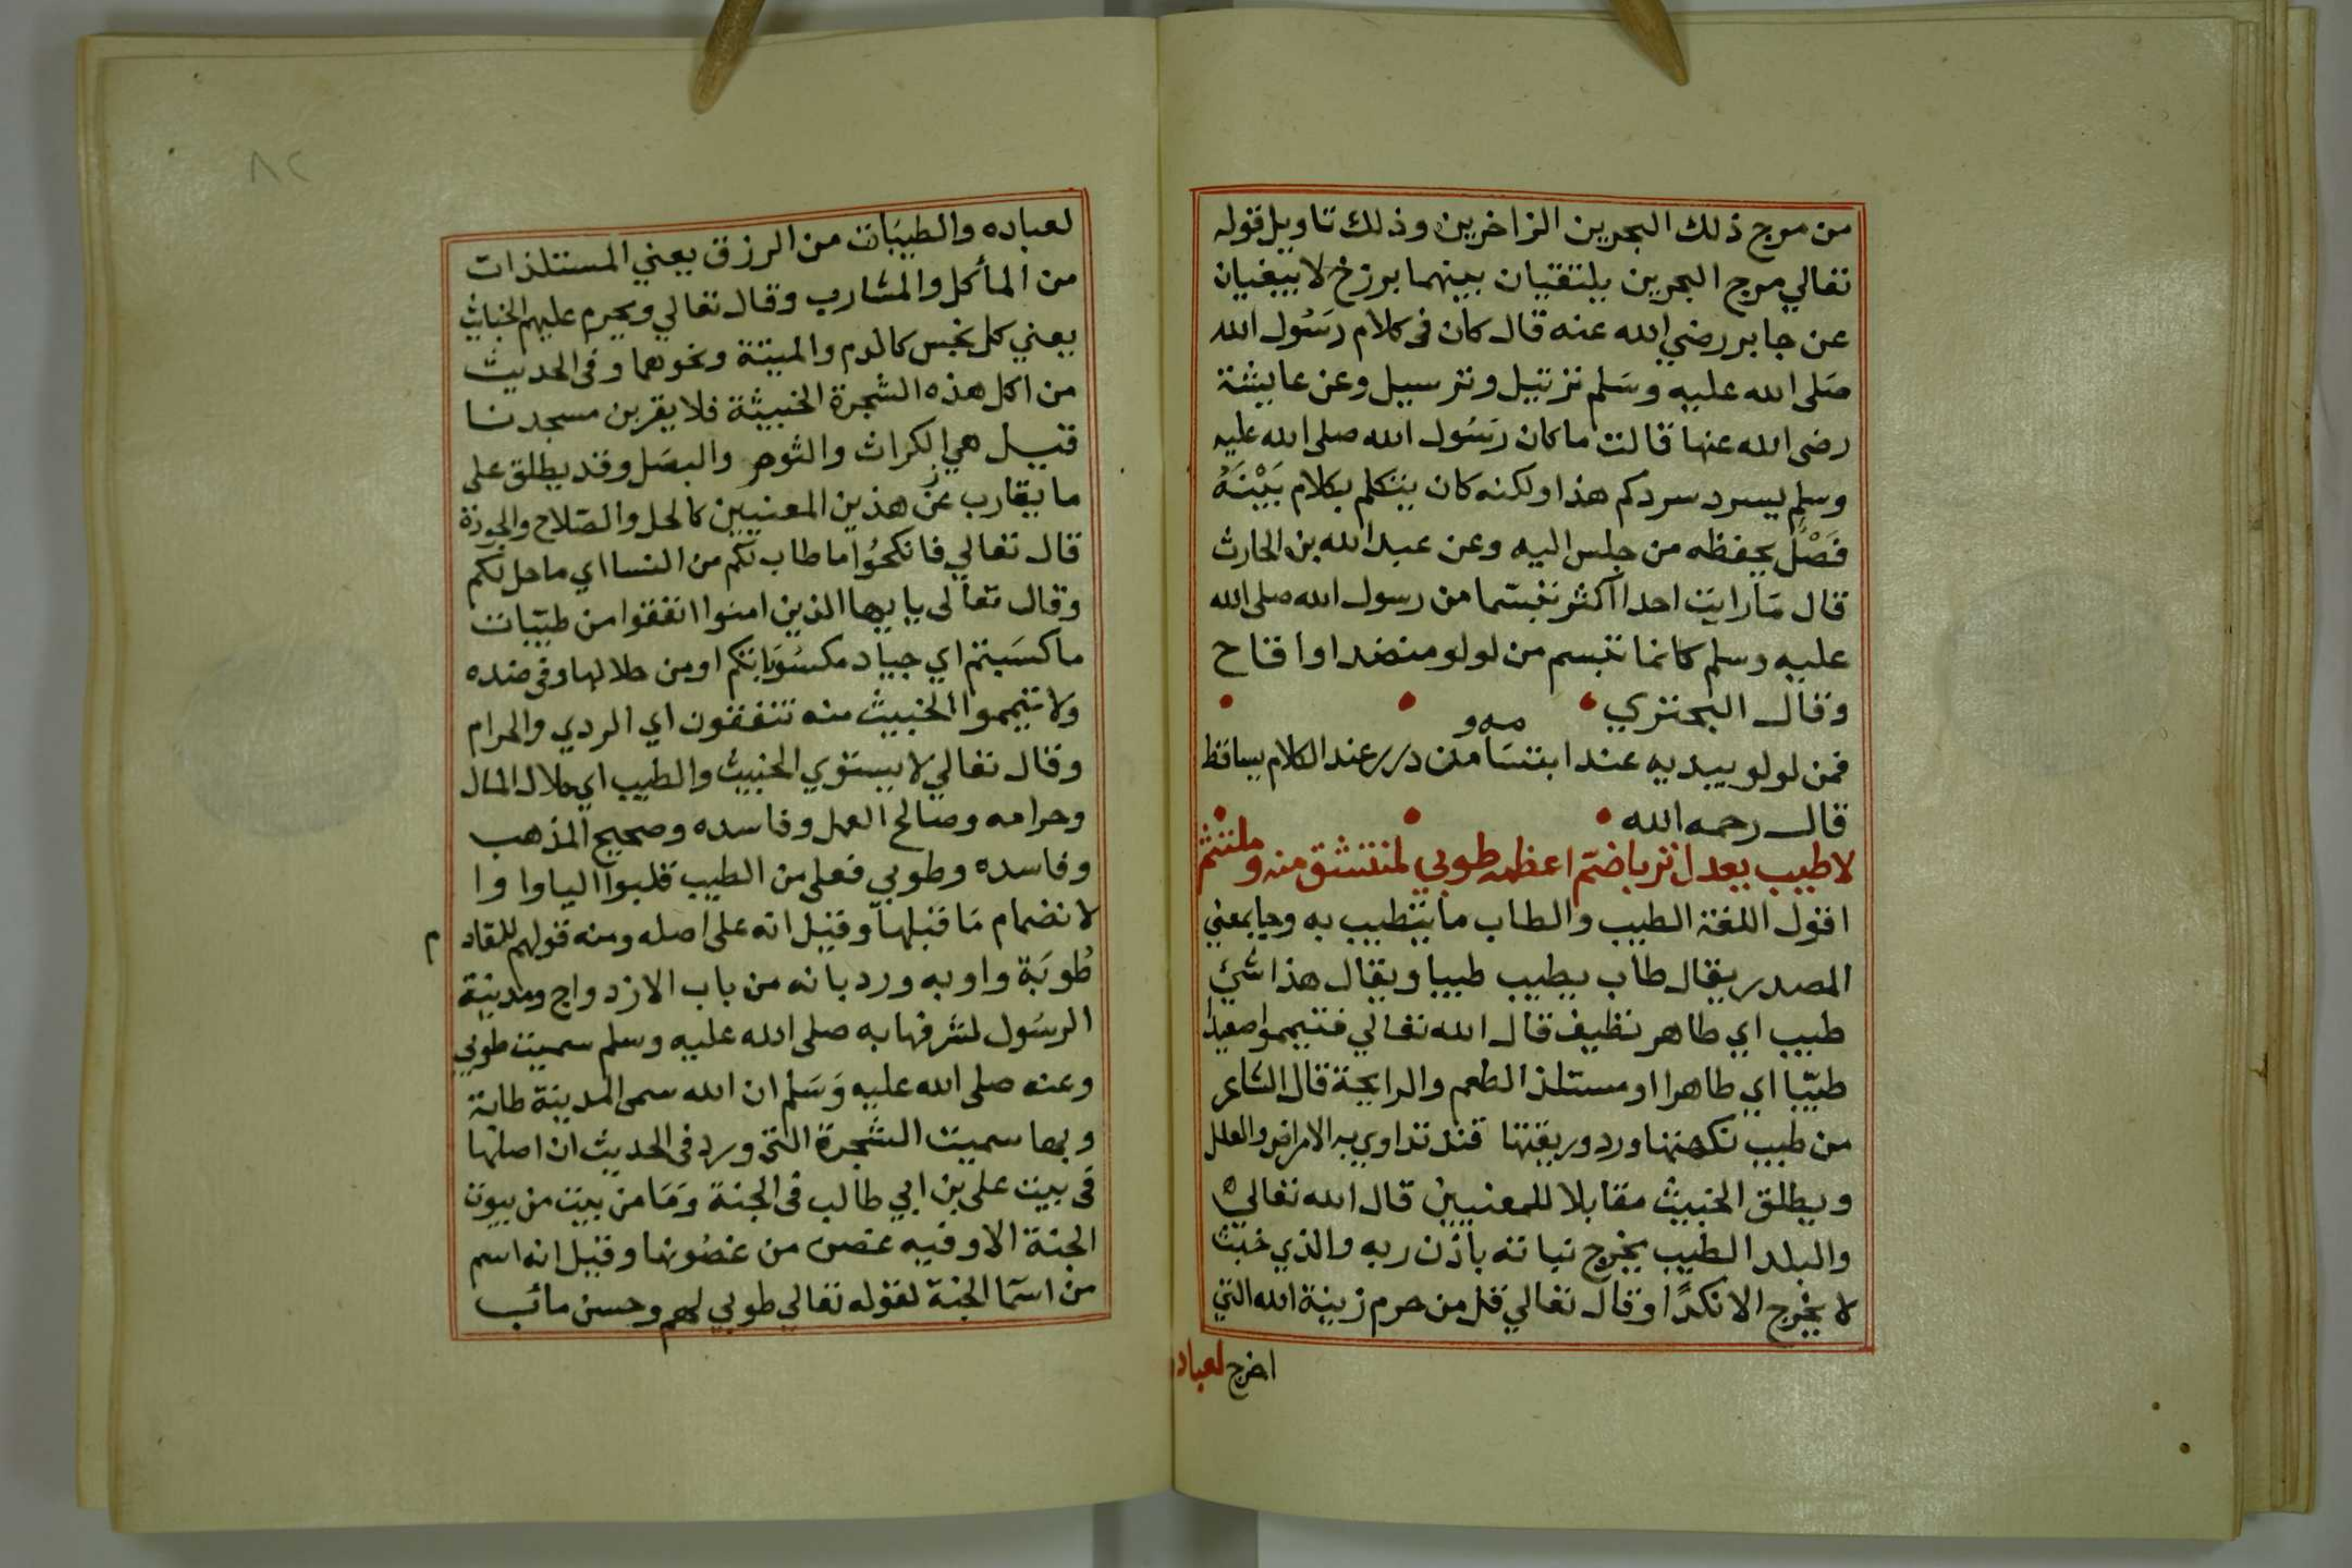 من موج ذلك البحرين الزاخرين وذلك تاويل قوله
تعالي مرج البحرين يلتقيان بينهما برزخ لا يبغيان
عن جابر رضي الله عنه قال كان فى كلام رسول الله
صلى الله عليه وسلم ترتيل وترسيل وعن عايشة
رضى الله عنها قالت ما كان رسول الله صلى الله عليه
وسلم يسرد سردكم هذا ولكنه كان يتكلم بكلام بَيْنَهُ
فَصْلٌ يحفظه من جلس اليه وعن عبد الله بن الحارث
قال ما رايت احدا اكثر تبسما من رسول الله صلى الله
عليه وسلم كانما تبسم من لولو منضد او اقاح
وقال البحتري
فمن لولو يبديه عند ابتسامه ومن درر عند الكلام يساقط
قال رحمه الله
لا طيب يعدل تربا ضم اعظمه طوبي لمنتشق منه وملتثم
اقول اللغة الطيب والطاب ما يتطيب به وجا بمعني
المصدر يقال طاب يطيب طيبا ويقال هذا شئ
طيب اي طاهر نظيف قال الله تعالي فتيمموا صعيدا
طيّبا اي طاهرا او مستلذ الطعم والرايحة قال الشاعر
من طيب نكهتها ورد وريقتها قند تداوي به الامراض والعلل
ويطلق الخبيث مقابلا للمعنيين قال الله تعالي
والبلد الطيب يخرج نباته باذن ربه والذي خبث
لا يخرج الا نكدًا وقال تعالي قل من حرم زينة الله التي
اخرج لعباده
٨٢
لعباده والطيبات من الرزق يعني المستلذات
من المأكل والمشارب وقال تعالي ويحرم عليهم الخبائث
يعني كل نجس كالدم والميتة ونحوهما وفى الحديث
من اكل هذه الشجرة الخبيثة فلا يقربن مسجدنا
قيل هي الكراث والثوم والبصل وقد يطلق على
ما يقارب عن هذين المعنيين كالحل والصلاح والجودة
قال تعالي فانكحُوا ما طاب لكم من النسا اي ما حل لكم
وقال تعالى يايها الذين امنوا انفقوا من طيّبات
ما كسبتم اي جياد مكسُوباتكم او من حلالها وفى ضده
ولا تيمموا الخبيث منه تنفقون اي الردي والحرام
وقال تعالي لا يستوي الخبيث والطيب اي حلال المال
وحرامه وصالح العمل وفاسده وصحيح المذهب
وفاسده وطوبي فعلى من الطيب قلبوا اليا واوا
لانضمام مَا قبلها وقيل انه على اصله ومنه قولهم للقادم
طُوبَة واوبه ورد بانه من باب الازدواج ومدينة
الرسُول لشرفها به صلى الله عليه وسلم سميت طوبي
وعنه صلى الله عليه وَسَلم ان الله سمى المدينة طابة
وبها سميت الشجرة التى ورد فى الحديث ان اصلها
فى بيت على بن ابي طالب فى الجنة وَمَا من بيت من بيوت
الجنة الا وفيه غصن من غصُونها وقيل انه اسم
من اسَما الجنة لقوله تعالي طوبي لهم وحسن مائب